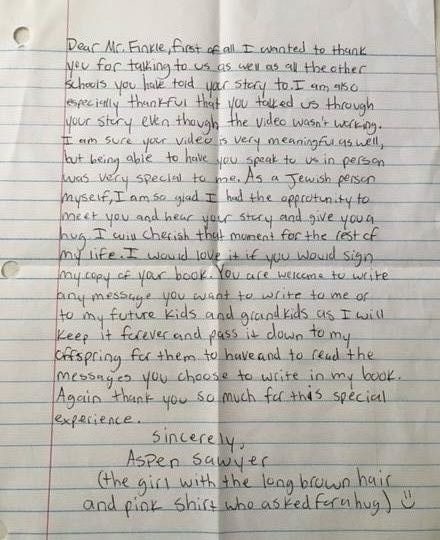 Dear Mr. Finkle, first of all I wanted to thank
you for talking to us as well as all the other
schools you have told your story to. I am also
especially thankful that you talked us through
your story even though the video wasn't working.
I am sure your video is very meaningful as well,
but being able to have you speak to us in person
was very special to me. As a Jewish person
myself, I am so glad I had the opprotunity to
meet you and hear your story and give you a
hug. I will cherish that moment for the rest of
my life. I would love it if you would sign
my copy of your book. You are welcome to write
any message you want to write to me or
to my future kids and grandkids as I will
keep it forever and pass it down to my
offspring for them to have and to read the
messages you choose to write in my book.
Again thank you so much for this special
experience.
Sincerely,
Aspen Sawyer
(the girl with the long brown hair
and pink shirt who asked for a hug) :)